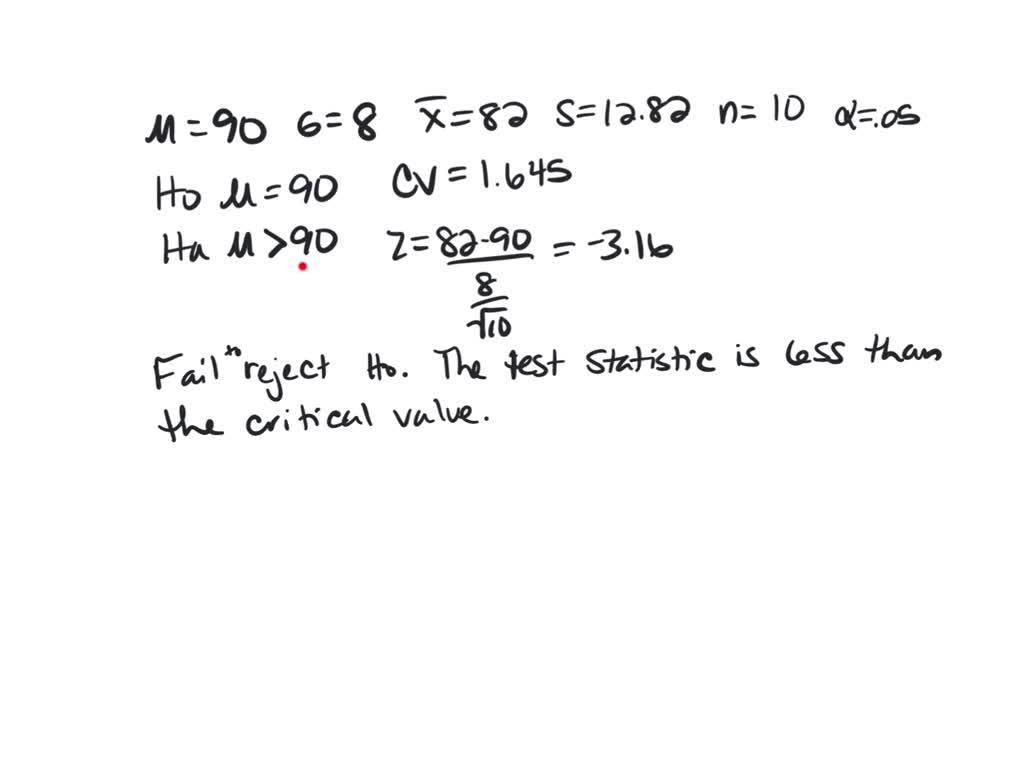 μ = 90 σ = 8 x̄ = 82 S = 12.82 n = 10 α = .05
Ho μ = 90 CV = 1.645
Ha μ > 90 Z = 82-90 / 8/√10 = -3.16
Fail to reject Ho. The test statistic is less than
the critical value.